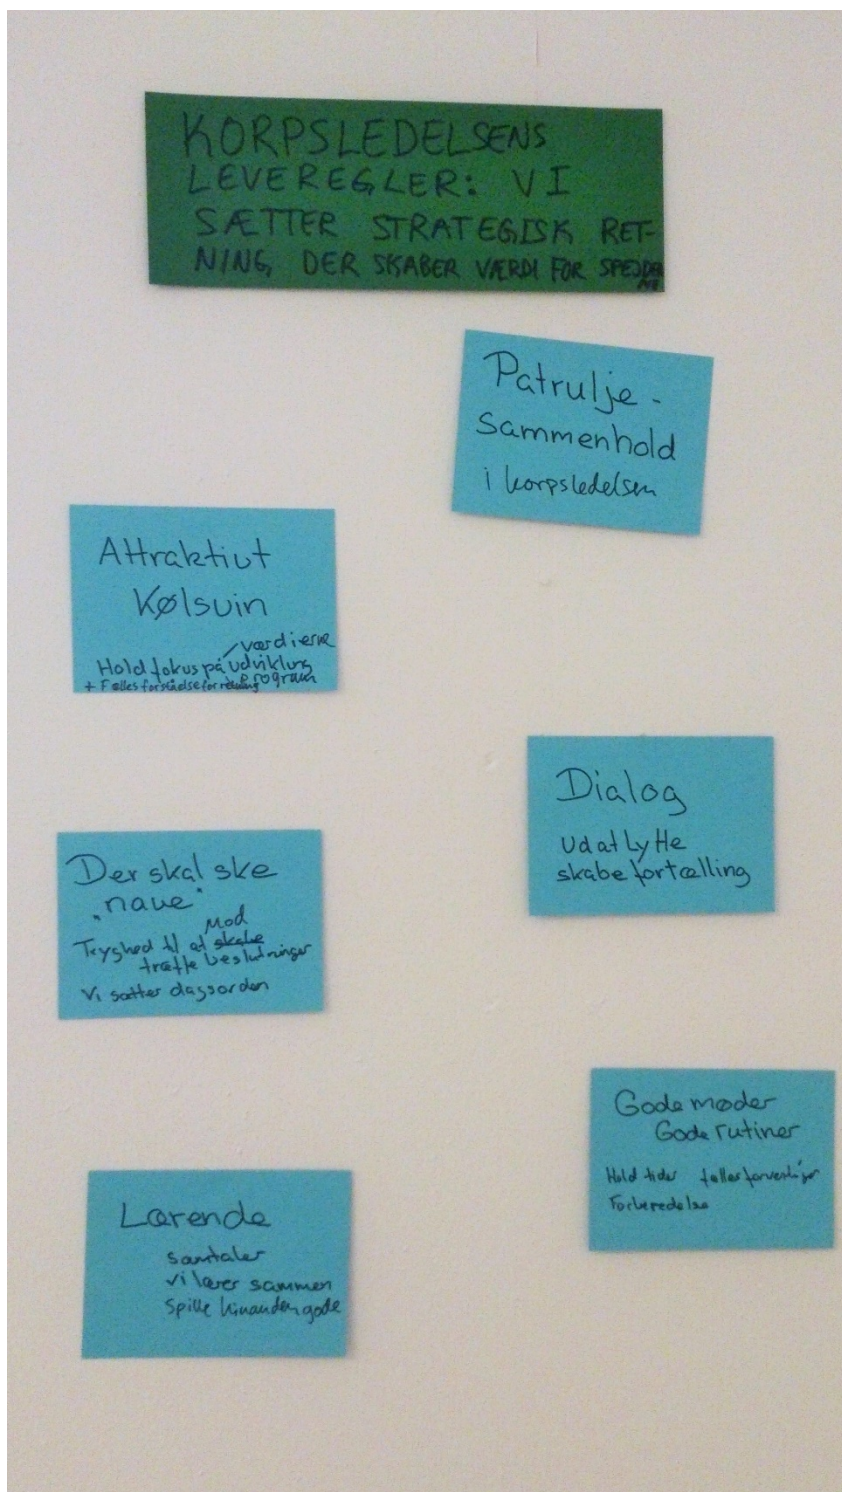 KORPSLEDELSENS
LEVEREGLER: VI
SÆTTER STRATEGISK RET-
NING, DER SKABER VÆRDI FOR SPEJDER
NE
Patrulje-
sammenhold
i korpsledelsen
Attraktivt
Kølsvin
værdierne
Hold fokus på udvikling
program
+ Fælles forståelse for retning
Dialog
ud at lytte
skabe fortælling
Der skal ske
"nave"
Mod
Tryghed til at skabe
træffe beslutninger
Vi sætter dagsorden
Gode møder
Gode rutiner
Hold tider fælles forventninger
Forberedelse
Lærende
samtaler
vi lærer sammen
Spille hinanden gode